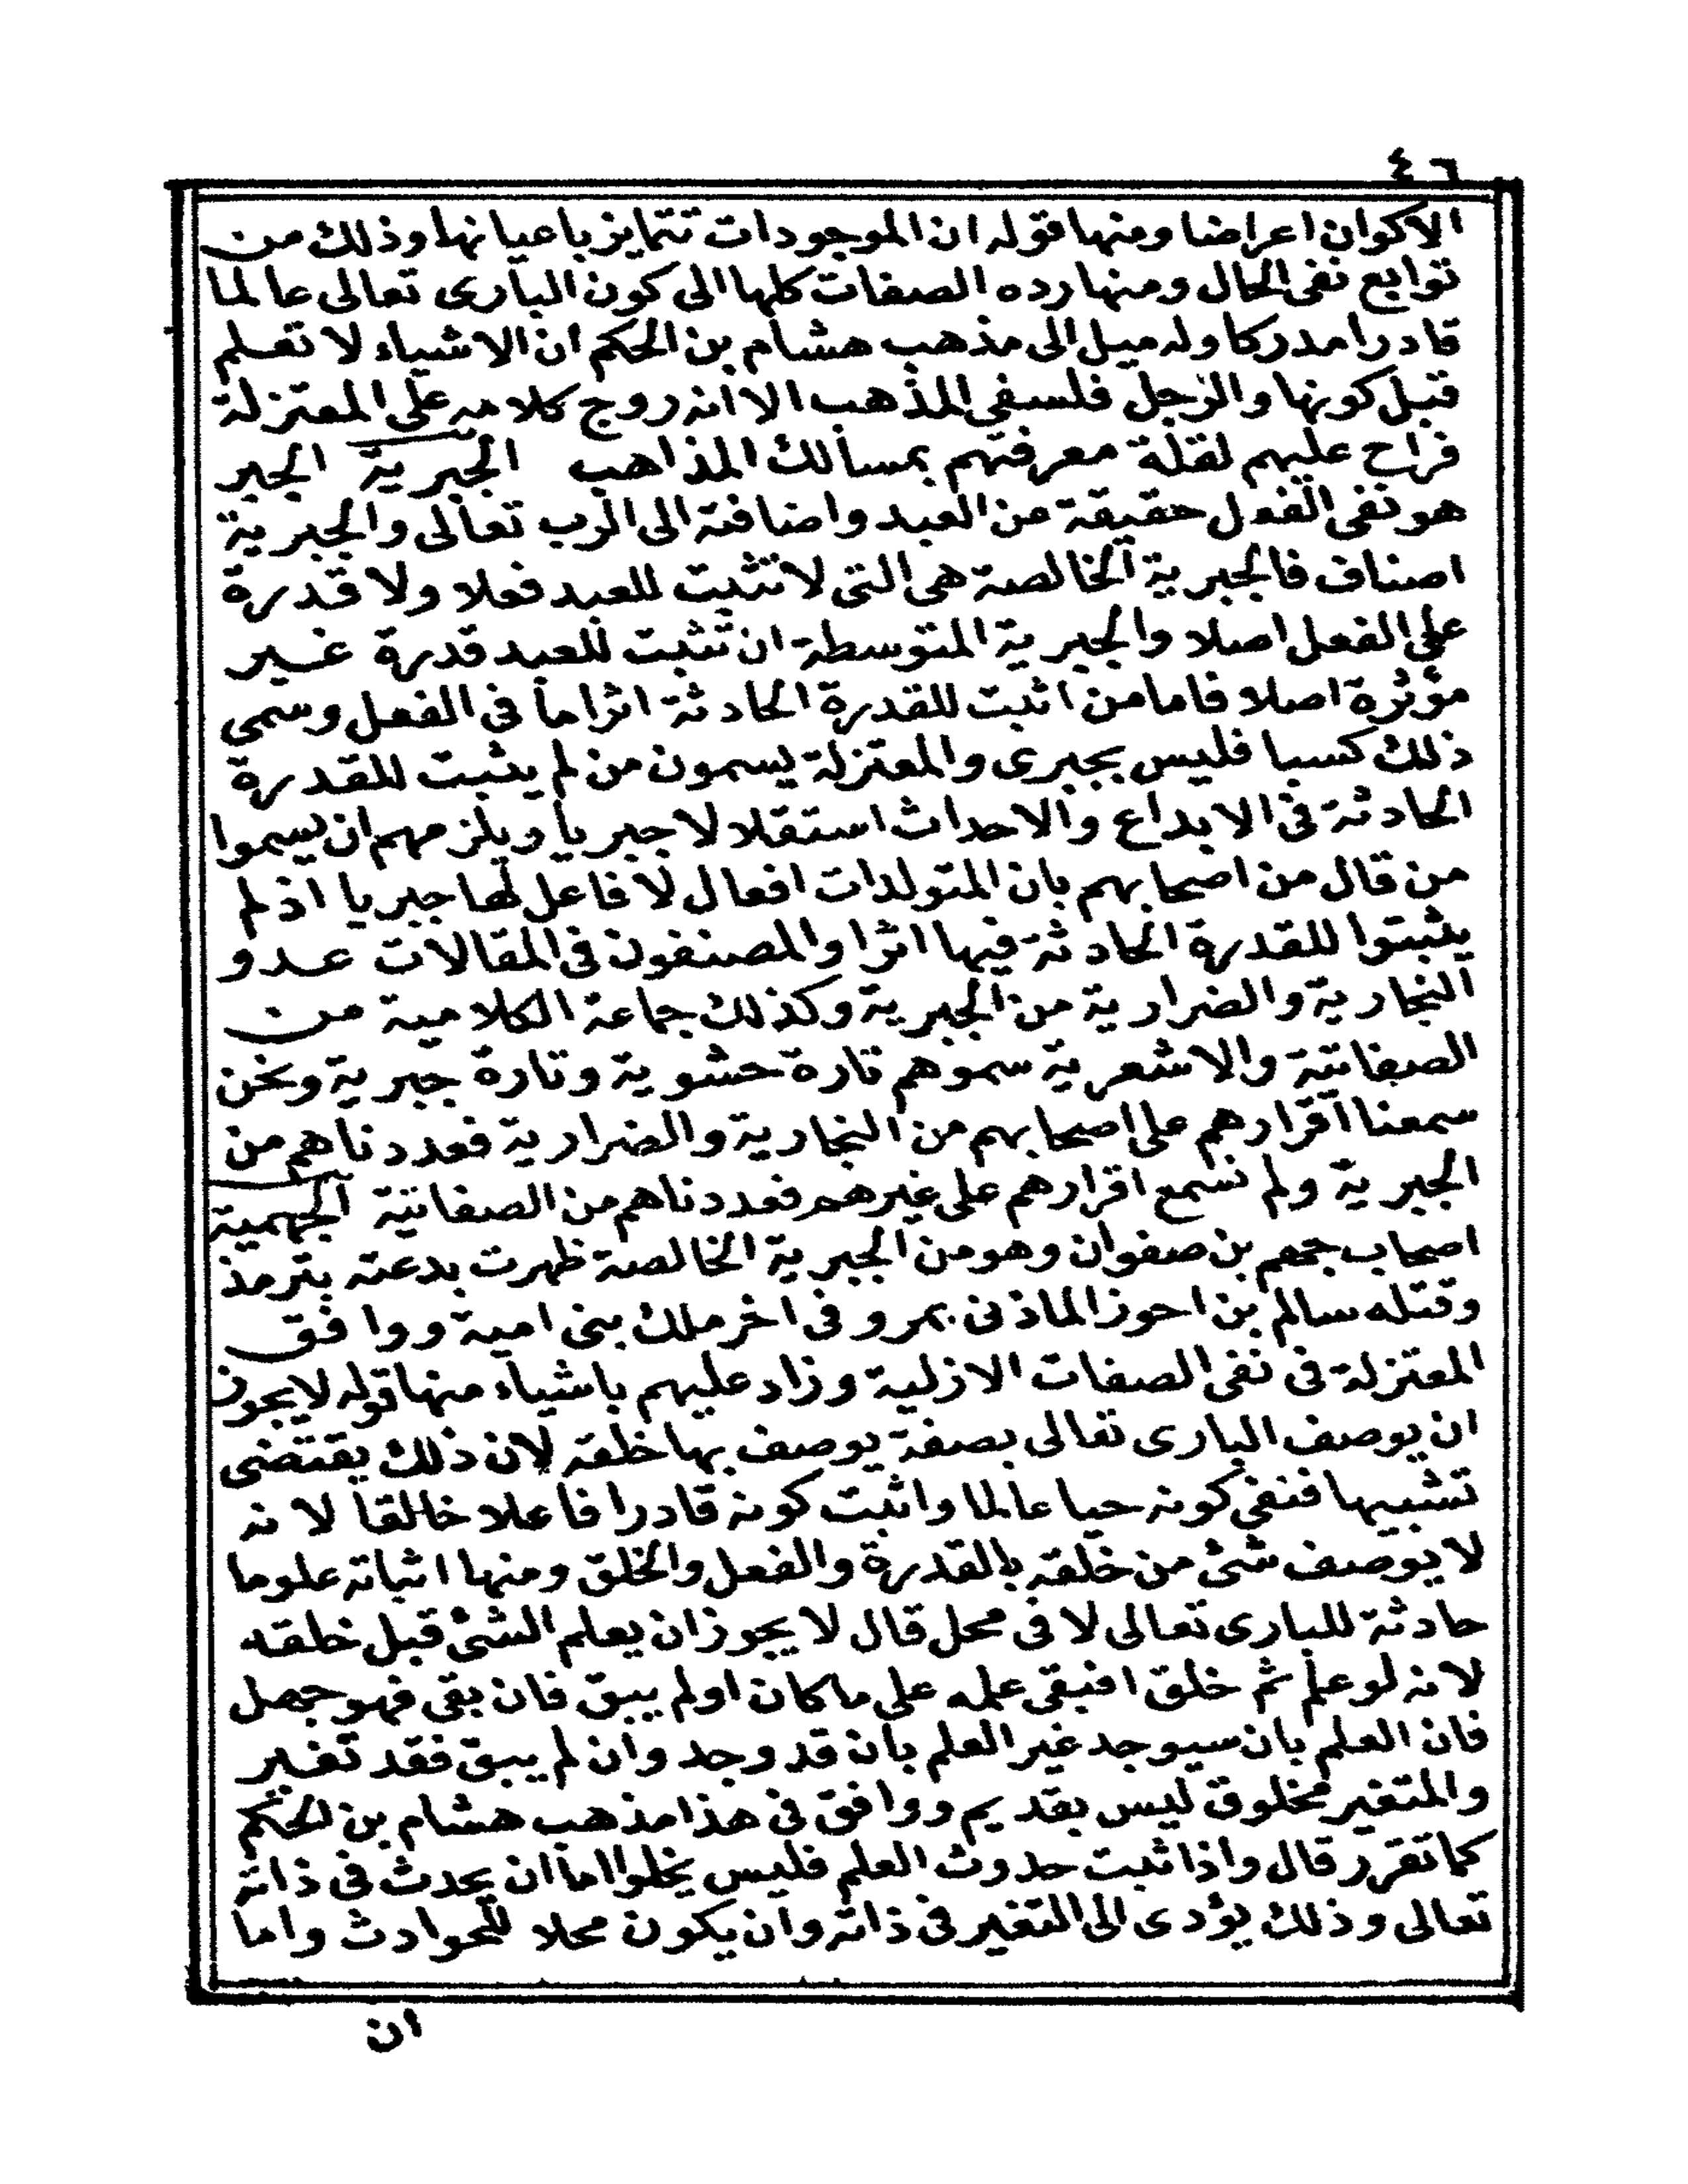 ٤٦
الاكوان اعراضا ومنها قوله ان الموجودات تتمايز باعيانها وذلك من
توابع نفى الحال ومنها رده الصفات كلها الى كون البارى تعالى عالما
قادرا مدركا وله ميل الى مذهب هشام بن الحكم ان الاشياء لا تعلم
قبل كونها والرجل فلسفي المذهب الا انه روج كلامه على المعتزلة
فراح عليهم لقلة معرفتهم بمسالك المذاهب الجبرية الجبر
هو نفى الفعل حقيقة عن العبد واضافته الى الرب تعالى والجبرية
اصناف فالجبرية الخالصة هى التى لا تثبت للعبد فعلا ولا قدرة
على الفعل اصلا والجبرية المتوسطة ان تثبت للعبد قدرة غير
مؤثرة اصلا فاما من اثبت للقدرة الحادثة اثرا ما فى الفعل وسمى
ذلك كسبا فليس بجبرى والمعتزلة يسمون من لم يثبت للقدرة
الحادثة فى الابداع والاحداث استقلالا جبريا ويلزمهم ان يسموا
من قال من اصحابهم بان المتولدات افعال لا فاعل لها جبريا اذ لم
يثبتوا للقدرة الحادثة فيها اثرا والمصنفون فى المقالات عدو
النجارية والضرارية من الجبرية وكذلك جماعة الكلامية من
الصفاتية والاشعرية سموهم تارة حشوية وتارة جبرية ونحن
سمعنا اقرارهم على اصحابهم من النجارية والضرارية فعددناهم من
الجبرية ولم نسمع اقرارهم على غيرهم فعددناهم من الصفاتية الجهمية
اصحاب جهم بن صفوان وهو من الجبرية الخالصة ظهرت بدعته بترمذ
وقتله سالم بن احوز الماذنى بمرو فى اخر ملك بنى امية ووافق
المعتزلة فى نفى الصفات الازلية وزاد عليهم باشياء منها قوله لا يجوز
ان يوصف البارى تعالى بصفة يوصف بها خلقه لان ذلك يقتضى
تشبيها فنفى كونه حيا عالما واثبت كونه قادرا فاعلا خالقا لانه
لا يوصف شئ من خلقه بالقدرة والفعل والخلق ومنها اثباته علوما
حادثة للبارى تعالى لا فى محل قال لا يجوز ان يعلم الشئ قبل خلقه
لانه لو علم ثم خلق افبقى علمه على ما كان اولم يبق فان بقى فهو جهل
فان العلم بان سيوجد غير العلم بان قد وجد وان لم يبق فقد تغير
والمتغير مخلوق ليس بقديم ووافق فى هذا مذهب هشام بن الحكم
كما تقرر قال واذا ثبت حدوث العلم فليس يخلوا اما ان يحدث فى ذاته
تعالى وذلك يؤدى الى التغير فى ذاته وان يكون محلا للحوادث واما
ان